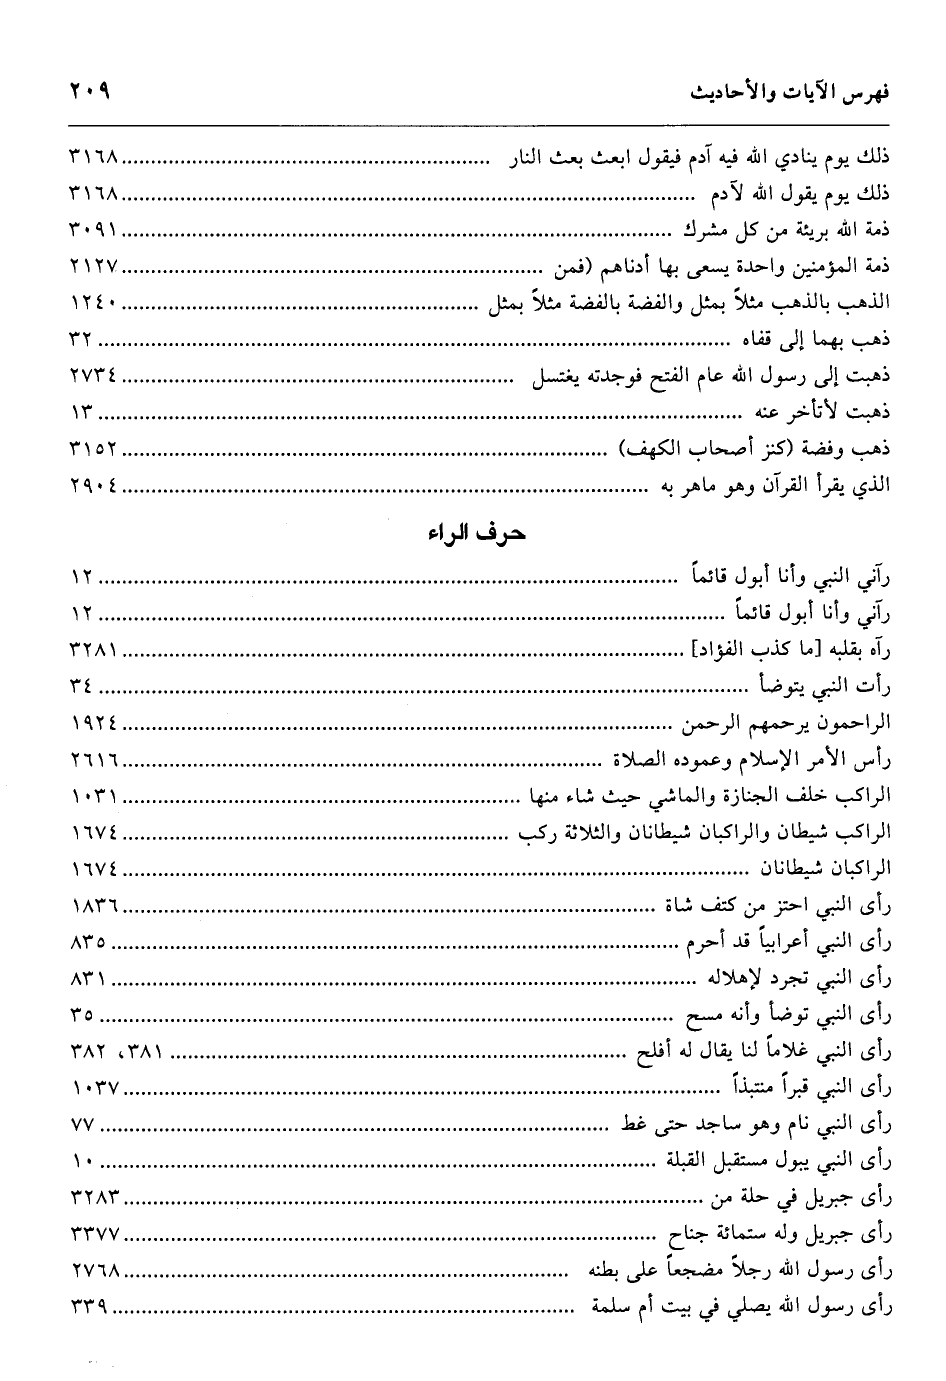 فهرس الآيات والأحاديث ٢٠٩
ذلك يوم ينادي الله فيه آدم فيقول ابعث بعث النار ........ ٣١٦٨
ذلك يوم يقول الله لآدم ........ ٣١٦٨
ذمة الله بريئة من كل مشرك ........ ٣٠٩١
ذمة المؤمنين واحدة يسعى بها أدناهم (فمن ........ ٢١٢٧
الذهب بالذهب مثلاً بمثل والفضة بالفضة مثلاً بمثل ........ ١٢٤٠
ذهب بهما إلى قفاه ........ ٣٢
ذهبت إلى رسول الله عام الفتح فوجدته يغتسل ........ ٢٧٣٤
ذهبت لأتأخر عنه ........ ١٣
ذهب وفضة (كنز أصحاب الكهف) ........ ٣١٥٢
الذي يقرأ القرآن وهو ماهر به ........ ٢٩٠٤
حرف الراء
رآني النبي وأنا أبول قائماً ........ ١٢
رآني وأنا أبول قائماً ........ ١٢
رآه بقلبه [ما كذب الفؤاد] ........ ٣٢٨١
رأت النبي يتوضأ ........ ٣٤
الراحمون يرحمهم الرحمن ........ ١٩٢٤
رأس الأمر الإسلام وعموده الصلاة ........ ٢٦١٦
الراكب خلف الجنازة والماشي حيث شاء منها ........ ١٠٣١
الراكب شيطان والراكبان شيطانان والثلاثة ركب ........ ١٦٧٤
الراكبان شيطانان ........ ١٦٧٤
رأى النبي احتز من كتف شاة ........ ١٨٣٦
رأى النبي أعرابياً قد أحرم ........ ٨٣٥
رأى النبي تجرد لإهلاله ........ ٨٣١
رأى النبي توضأ وأنه مسح ........ ٣٥
رأى النبي غلاماً لنا يقال له أفلح ........ ٣٨١، ٣٨٢
رأى النبي قبراً منتبذاً ........ ١٠٣٧
رأى النبي نام وهو ساجد حتى غط ........ ٧٧
رأى النبي يبول مستقبل القبلة ........ ١٠
رأى جبريل في حلة من ........ ٣٢٨٣
رأى جبريل وله ستمائة جناح ........ ٣٣٧٧
رأى رسول الله رجلاً مضجعاً على بطنه ........ ٢٧٦٨
رأى رسول الله يصلي في بيت أم سلمة ........ ٣٣٩